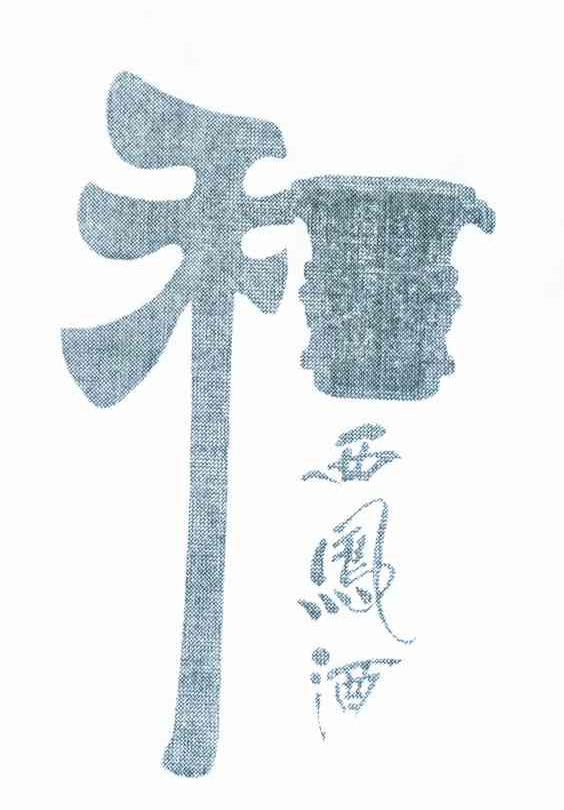 和
西鳳酒